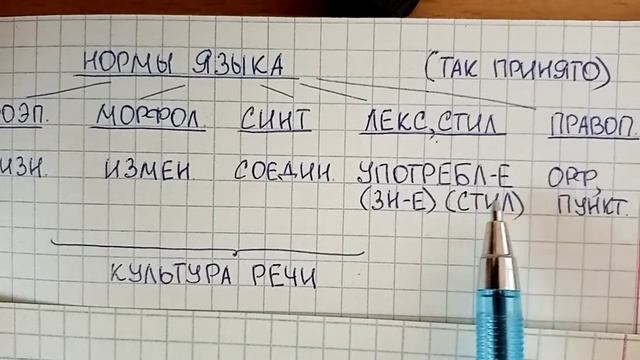 НОРМЫ ЯЗЫКА (ТАК ПРИНЯТО)
ОЭП. МОРФОЛ. СИНТ ЛЕКС, СТИЛ ПРАВОП.
ИЗН. ИЗМЕН. СОЕДИН. УПОТРЕБЛ-Е ОРФ,
(ЗН-Е) (СТИЛ) ПУНКТ.
КУЛЬТУРА РЕЧИ